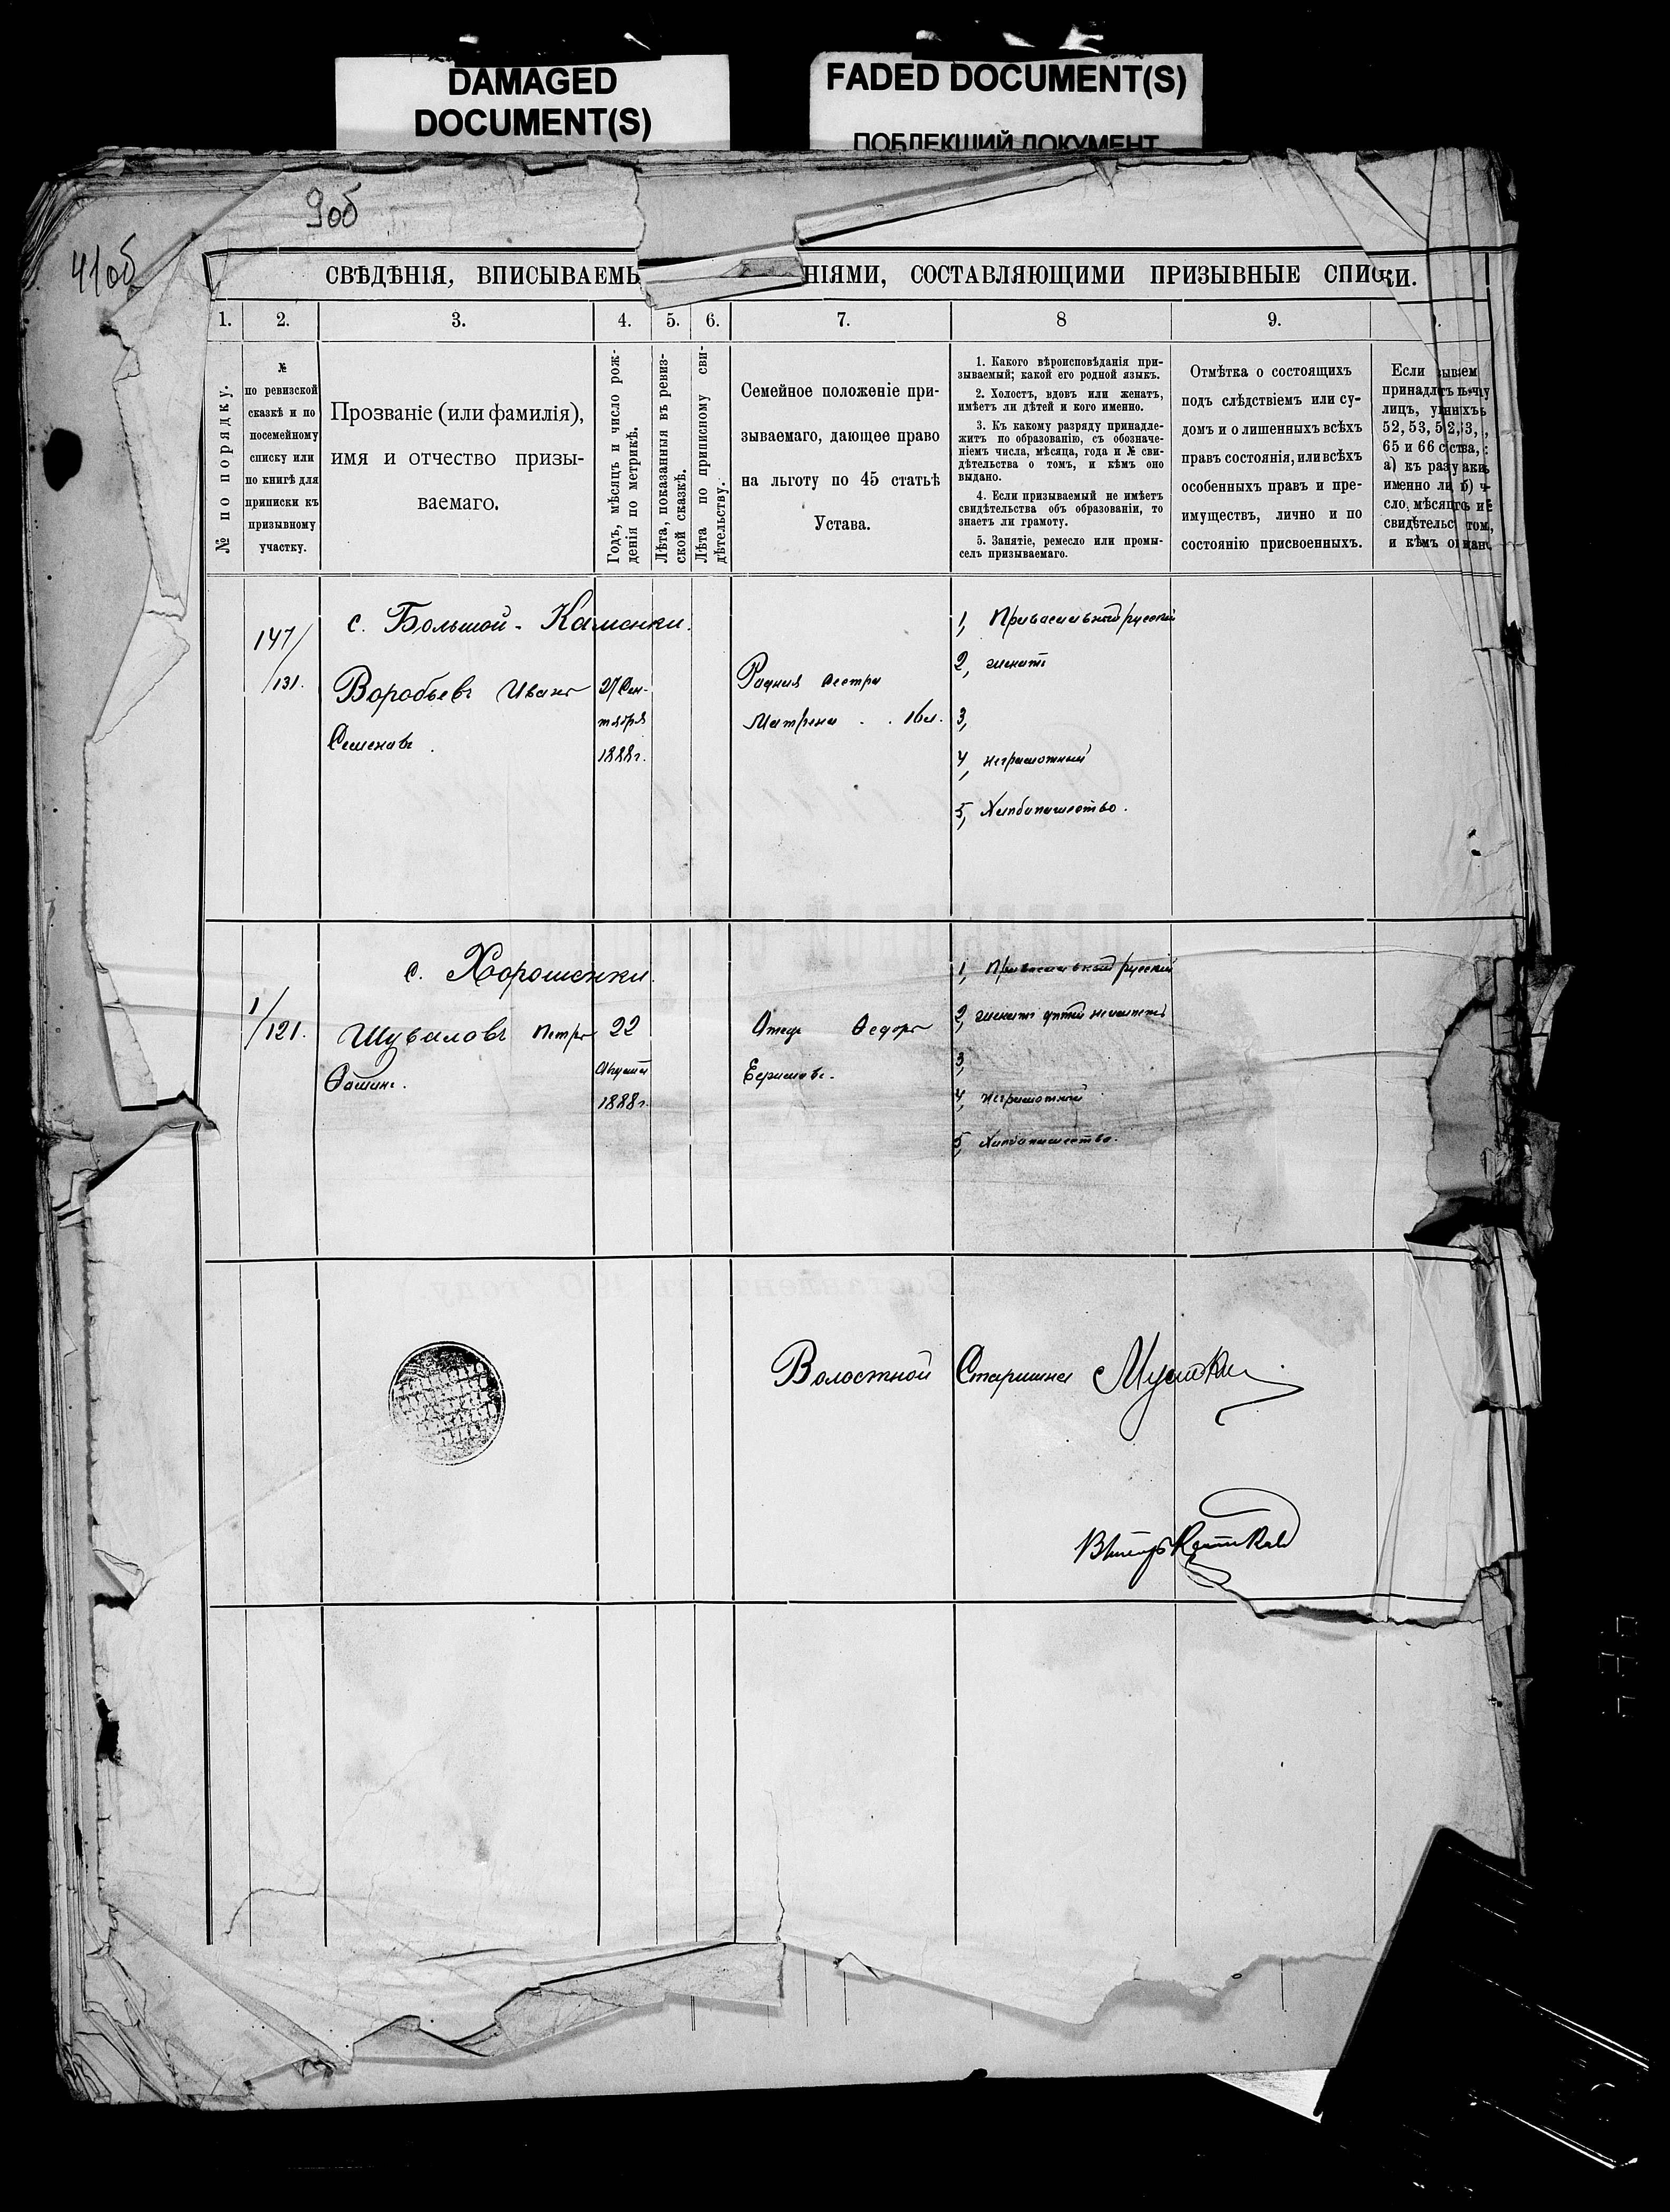 DAMAGED
DOCUMENT(S)
FADED DOCUMENT(S)
ПОБЛЕКШИЙ ДОКУМЕНТ
9об
41об
СВѢДѢНІЯ, ВПИСЫВАЕМЫ НІЯМИ, СОСТАВЛЯЮЩИМИ ПРИЗЫВНЫЕ СПИСКИ.
1. 2. 3. 4. 5. 6. 7. 8 9.
№ по порядку.
№
по ревизской
сказкѣ и по
посемейному
списку или
по книгѣ для
приписки къ
призывному
участку.
Прозваніе (или фамилія),
имя и отчество призы-
ваемаго.
Годъ, мѣсяцъ и число рож-
денія по метрикѣ.
Лѣта, показанныя въ ревиз-
ской сказкѣ.
Лѣта по приписному сви-
дѣтельству.
Семейное положеніе при-
зываемаго, дающее право
на льготу по 45 статьѣ
Устава.
1. Какого вѣроисповѣданія при-
зываемый; какой его родной языкъ.
2. Холостъ, вдовъ или женатъ,
имѣетъ ли дѣтей и кого именно.
3. Къ какому разряду принадле-
житъ по образованію, съ обозначе-
ніемъ числа, мѣсяца, года и № сви-
дѣтельства о томъ, и кѣмъ оно
выдано.
4. Если призываемый не имѣетъ
свидѣтельства объ образованіи, то
знаетъ ли грамоту.
5. Занятіе, ремесло или промы-
селъ призываемаго.
Отмѣтка о состоящихъ
подъ слѣдствіемъ или су-
домъ и о лишенныхъ всѣхъ
правъ состоянія, или всѣхъ
особенныхъ правъ и пре-
имуществъ, лично и по
состоянію присвоенныхъ.
Если
лицъ,
52, 53,
65 и 66
а) къ
именно ли б)
сло, мѣсяц
свидѣтельс том,
и кѣмъ
с. Большой-Каменки.
147/
/131.
Воробьевъ Иванъ
Семеновъ.
27 Сен-
тября
1888г.
Родная сестра
Матрена 16 л.
1, Православный русскій
2, женатъ
3,
4, неграмотный
5, Хлѣбопашество.
с. Хорошенки.
1/
/121.
Шуваловъ Петръ
22
Августа
1888г.
Отецъ Ѳедоръ
1, Православный русскій
2, женатъ дѣтей не имѣетъ
3,
4, неграмотный
5, Хлѣбопашество.
Волостной Старшина